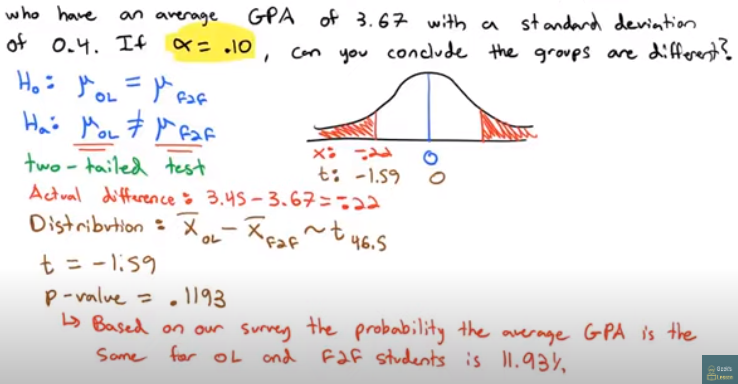 who have an average GPA of 3.67 with a standard deviation
of 0.4. If α = .10, can you conclude the groups are different?
H₀: μ_OL = μ_F2F
Hₐ: μ_OL ≠ μ_F2F
two-tailed test
x: -.22 0
t: -1.59 0
Actual difference: 3.45 - 3.67 = -.22
Distribution: X̄_OL - X̄_F2F ~ t_46.5
t = -1.59
p-value = .1193
↳ Based on our survey the probability the average GPA is the
same for OL and F2F students is 11.93%.